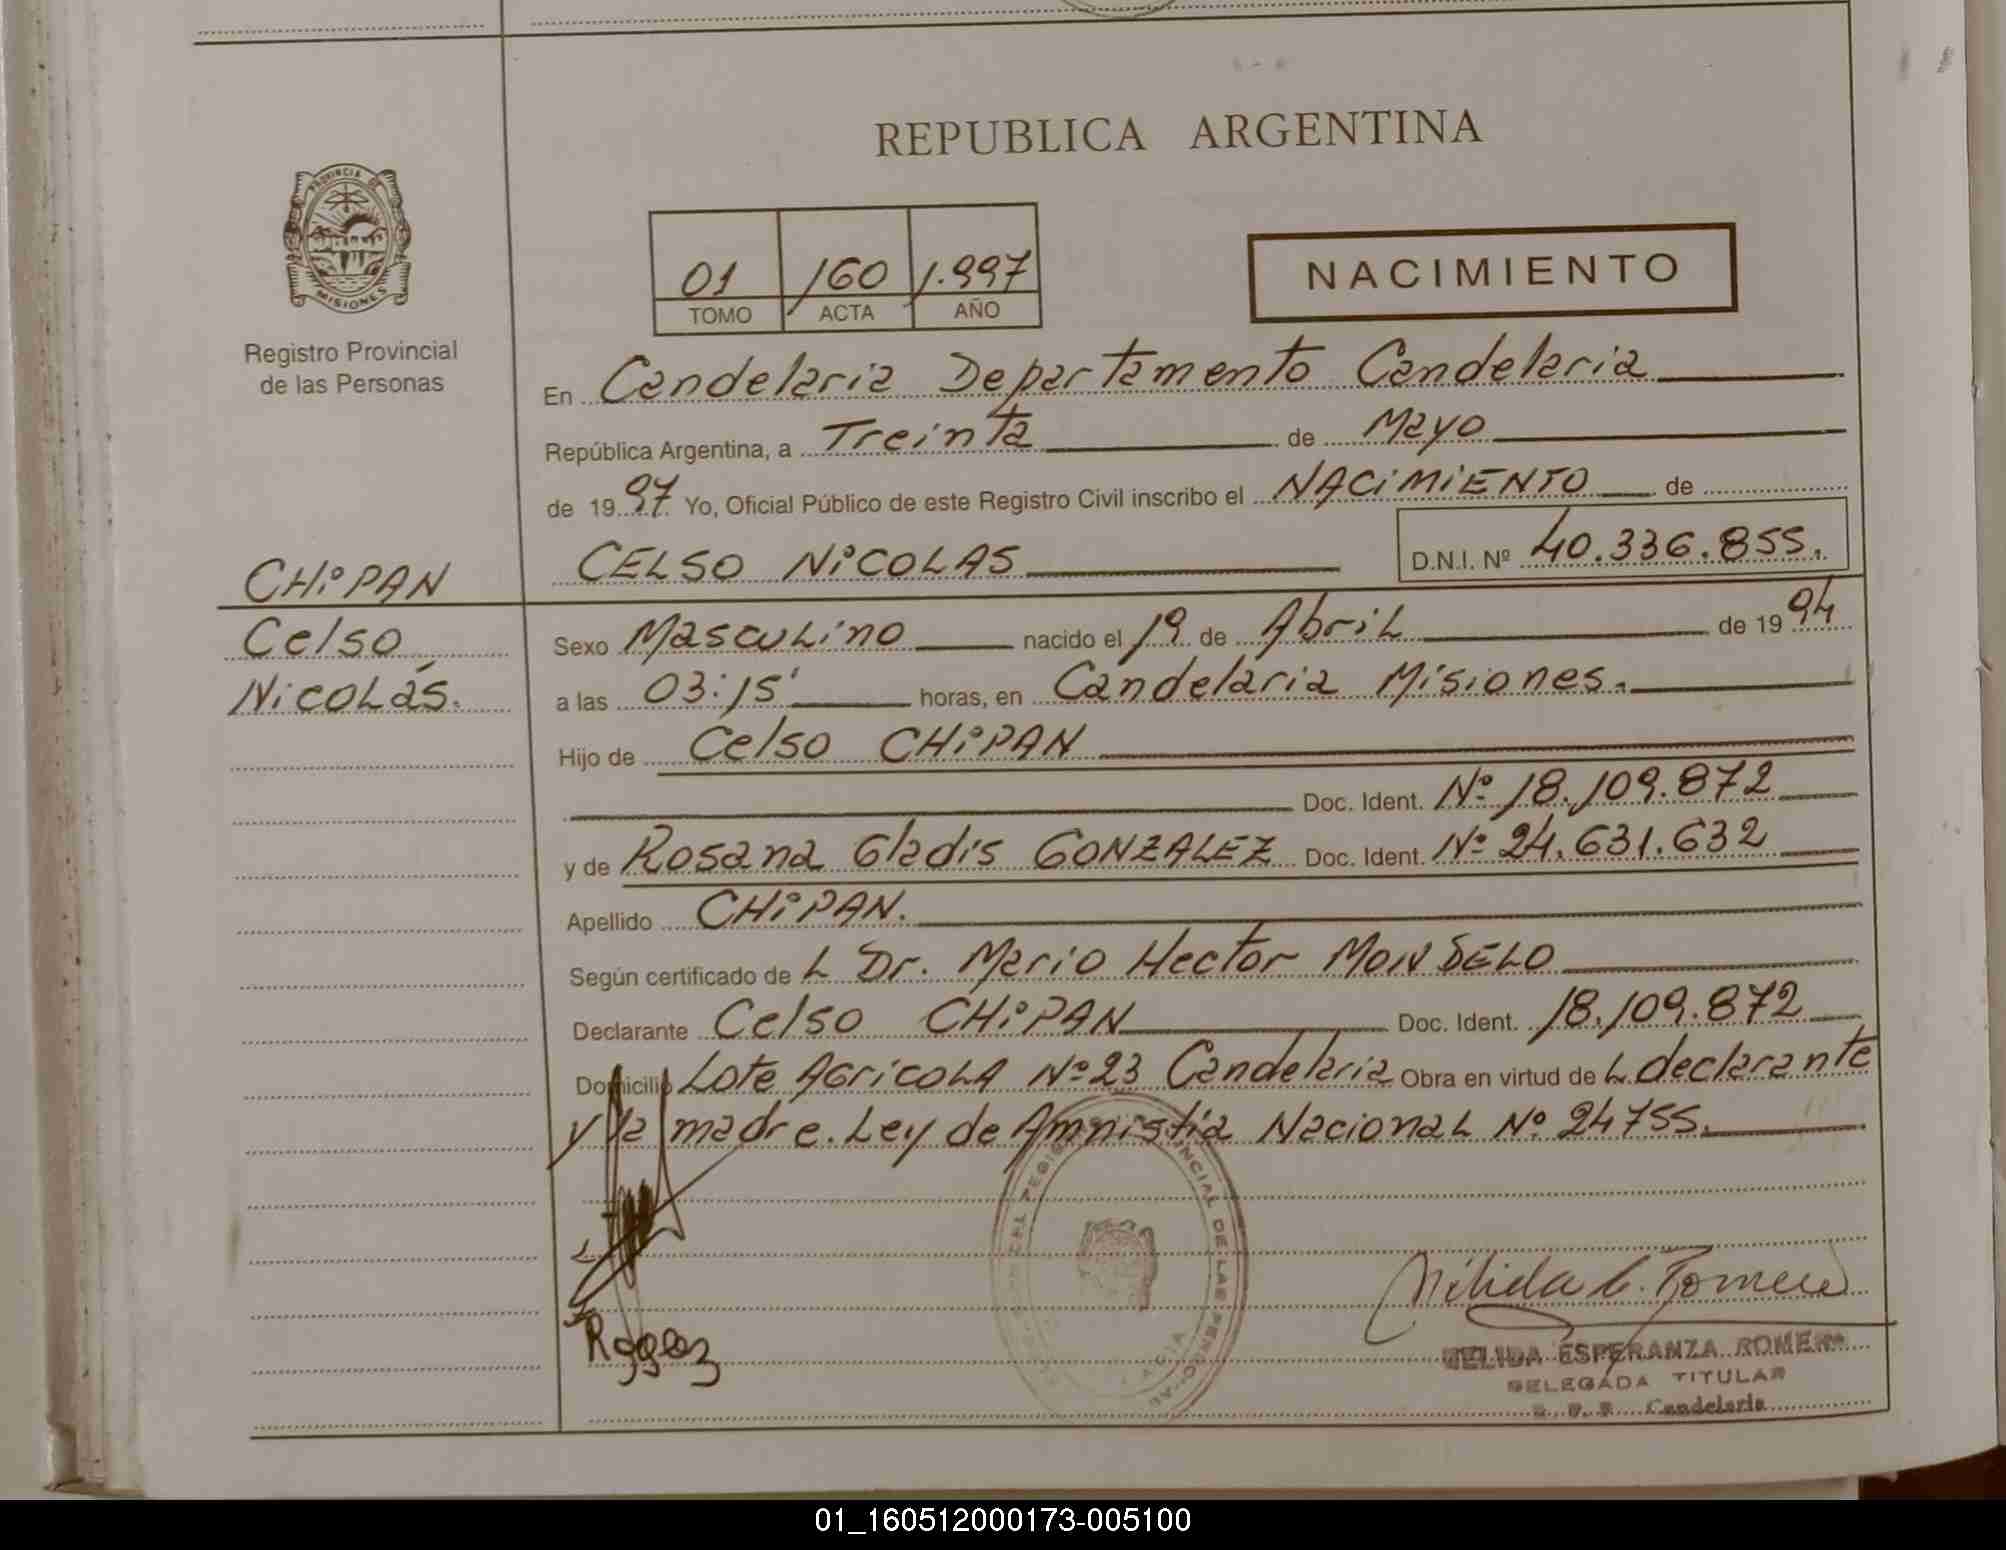 REPUBLICA ARGENTINA
PROVINCIA DE MISIONES
Registro Provincial
de las Personas
01 160 1.997
TOMO ACTA AÑO
NACIMIENTO
En Candelaria Departamento Candelaria
República Argentina, a Treinta de Mayo
de 1997 Yo, Oficial Público de este Registro Civil inscribo el NACIMIENTO de
CELSO NICOLAS D.N.I. Nº 40.336.855.
CHIPAN
Celso
Nicolás.
Sexo Masculino nacido el 19 de Abril de 1994
a las 03:15' horas, en Candelaria Misiones.
Hijo de Celso CHIPAN
Doc. Ident. Nº 18.109.872
y de Rosana Gladis GONZALEZ Doc. Ident. Nº 24.631.632
Apellido CHIPAN.
Según certificado de L Dr. Mario Hector MONDELO
Declarante Celso CHIPAN Doc. Ident. 18.109.872
Domicilio Lote Agricola Nº 23 Candelaria Obra en virtud de L declarante
y la madre. Ley de Amnistia Nacional Nº 24755.
NELIDA ESPERANZA ROMERO
DELEGADA TITULAR
Candelaria
01_160512000173-005100